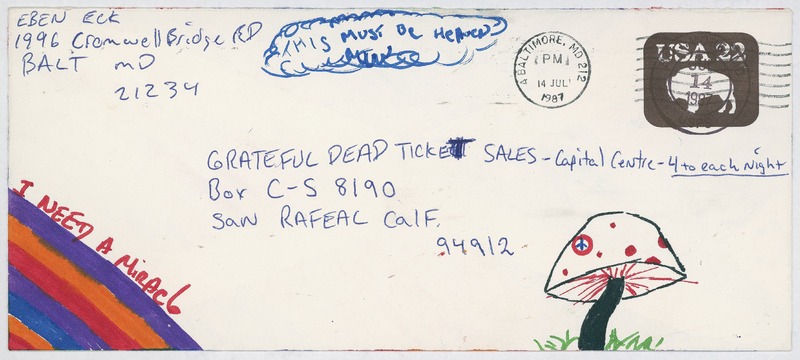 EBEN ECK
1996 Cromwell Bridge RD
BALT MD
21234
THIS MUST BE HEAVEN
BALTIMORE, MD 212
PM
14 JUL
1987
USA 22
14
GRATEFUL DEAD TICKET SALES - Capital Centre - 4 to each Night
Box C-S 8190
San RAFEAL CaliF.
94912
I NEED A MiRAcle